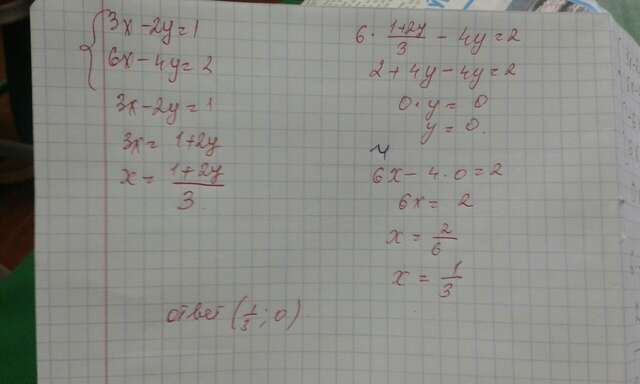 3x - 2y = 1
6x - 4y = 2
3x - 2y = 1
3x = 1 + 2y
x = (1 + 2y)/3
6 · (1 + 2y)/3 - 4y = 2
2 + 4y - 4y = 2
0 · y = 0
y = 0.
6x - 4 · 0 = 2
6x = 2
x = 2/6
x = 1/3
ответ (1/3; 0)